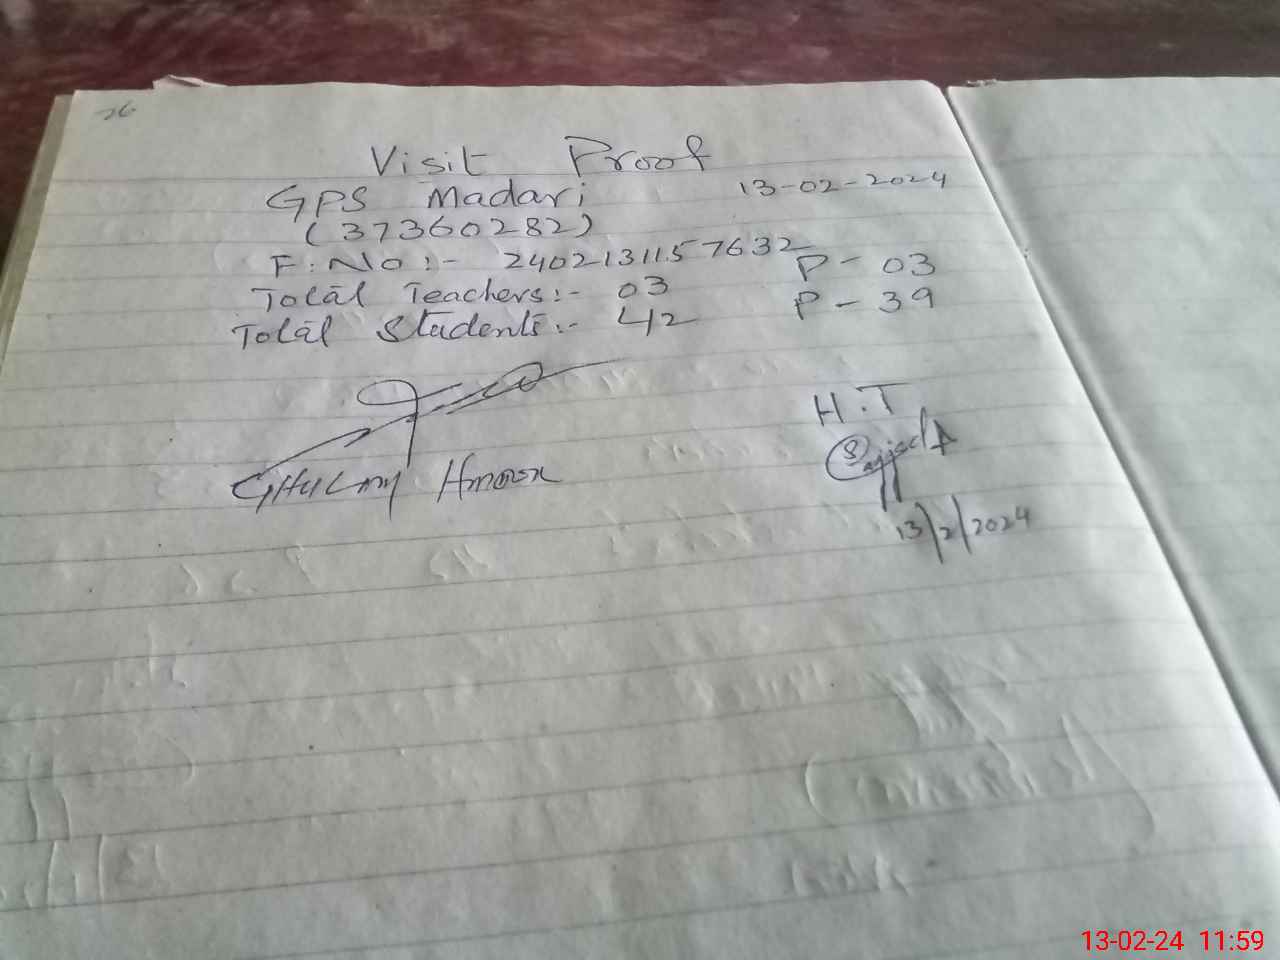 26
Visit Proof
GPS Madari 13-02-2024
(37360282)
F.No:- 2402131157632
Total Teachers:- 03 P- 03
Total Students:- 42 P - 39
H.T
Sajjad A
13/2/2024
13-02-24 11:59